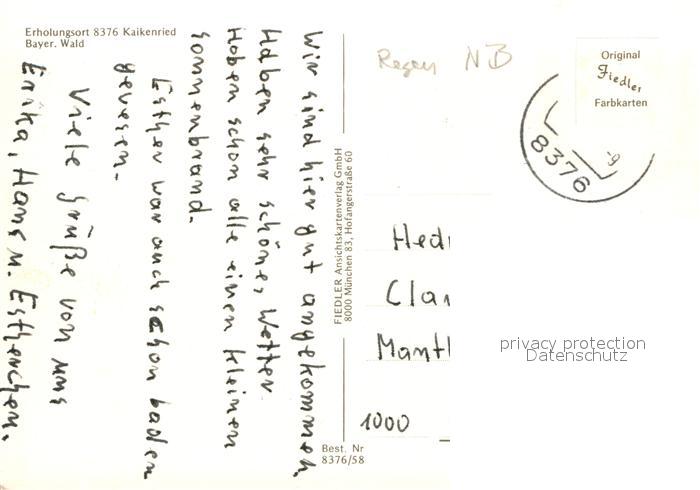 Erholungsort 8376 Kaikenried
Bayer. Wald
Wir sind hier gut angekommen,
Haben sehr schönes Wetter.
Haben schon alle einen kleinen
Sonnenbrand.
Esther war auch schon baden
gewesen.
Viele Grüße von uns
Erika, Hans u. Estherchen.
FIEDLER Ansichtskartenverlag GmbH
8000 München 83, Hofangerstraße 60
Best. Nr
8376/58
Regen NB
Original
Fiedler
Farbkarten
8376
-9
Hedi
Clar
Manth
1000
privacy protection
Datenschutz